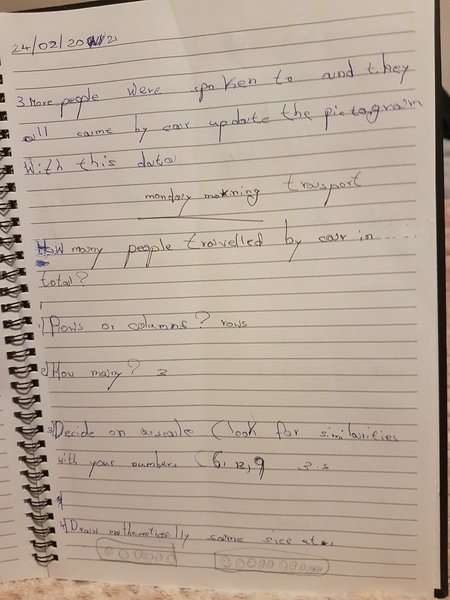 24/02/2021
3 More people were spoken to and they
all came by car update the pictogram
With this data
monday morning transport
How many people travelled by car in ......
total?
1) Rows or columns? rows
2) How many? 3
3) Decide on a scale (look for similarities
with your numbers (6, 12, 9 3.s
4) Draw mathematically same size etc.